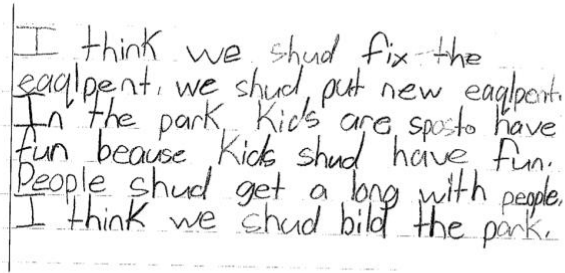 I think we shud fix the
eaqlpent. we shud put new eaqlpent.
In the park. Kids are sposto have
fun beause Kids shud have fun.
People shud get a long with people.
I think we shud bild the park.